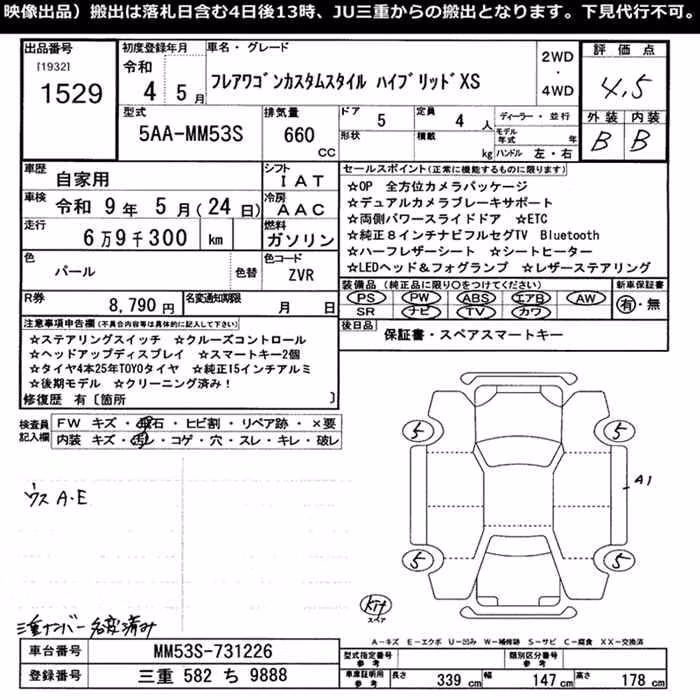 映像出品）搬出は落札日含む4日後13時、JU三重からの搬出となります。下見代行不可。
出品番号
[1932]
1529
初度登録年月
令和
4 5 月
車名・グレード
フレアワゴンカスタムスタイル ハイブリッドXS
2WD
・
4WD
評価点
4.5
外装 内装
B B
型式
5AA-MM53S
排気量
660
CC
ドア
5
定員
4 人
形状
積載
kg
ディーラー・並行
モデル年式 年
ハンドル 左・右
車歴
自家用
シフト
IAT
車検
令和 9 年 5 月(24 日)
冷房
AAC
走行
6万9千300 km
燃料
ガソリン
色
パール
色替
色コード
ZVR
R券
8,790 円
名変通知期限
月 日
セールスポイント(正常に機能するものに限ります)
☆OP 全方位カメラパッケージ
☆デュアルカメラブレーキサポート
☆両側パワースライドドア ☆ETC
☆純正8インチナビフルセグTV Bluetooth
☆ハーフレザーシート ☆シートヒーター
☆LEDヘッド＆フォグランプ ☆レザーステアリング
装備品(純正品に限り○をつけてください)
PS PW ABS エアB AW
SR ナビ TV カワ
新車保証書
有・無
後日品
保証書・スペアスマートキー
注意事項申告欄(不具合内容等は具体的に記入して下さい)
☆ステアリングスイッチ ☆クルーズコントロール
☆ヘッドアップディスプレイ ☆スマートキー2個
☆タイヤ4本25年TOYOタイヤ ☆純正15インチアルミ
☆後期モデル ☆クリーニング済み！
修復歴 有〔箇所 〕
検査員記入欄
FW キズ・飛石・ヒビ割・リペア跡・×要
内装 キズ・汚レ・コゲ・穴・スレ・キレ・破レ
ウス A・E
5
5
5
5
A1
kit
スペア
三重ナンバー 名変済み
A－キズ E－エクボ U－凹み W－補修跡 S－サビ C－腐食 XX－交換済
車台番号
MM53S-731226
登録番号
三重 582 ち 9888
型式指定番号
参考
類別区分番号
参考
車庫証明用
参考
長さ 339 cm
幅 147 cm
高さ 178 cm